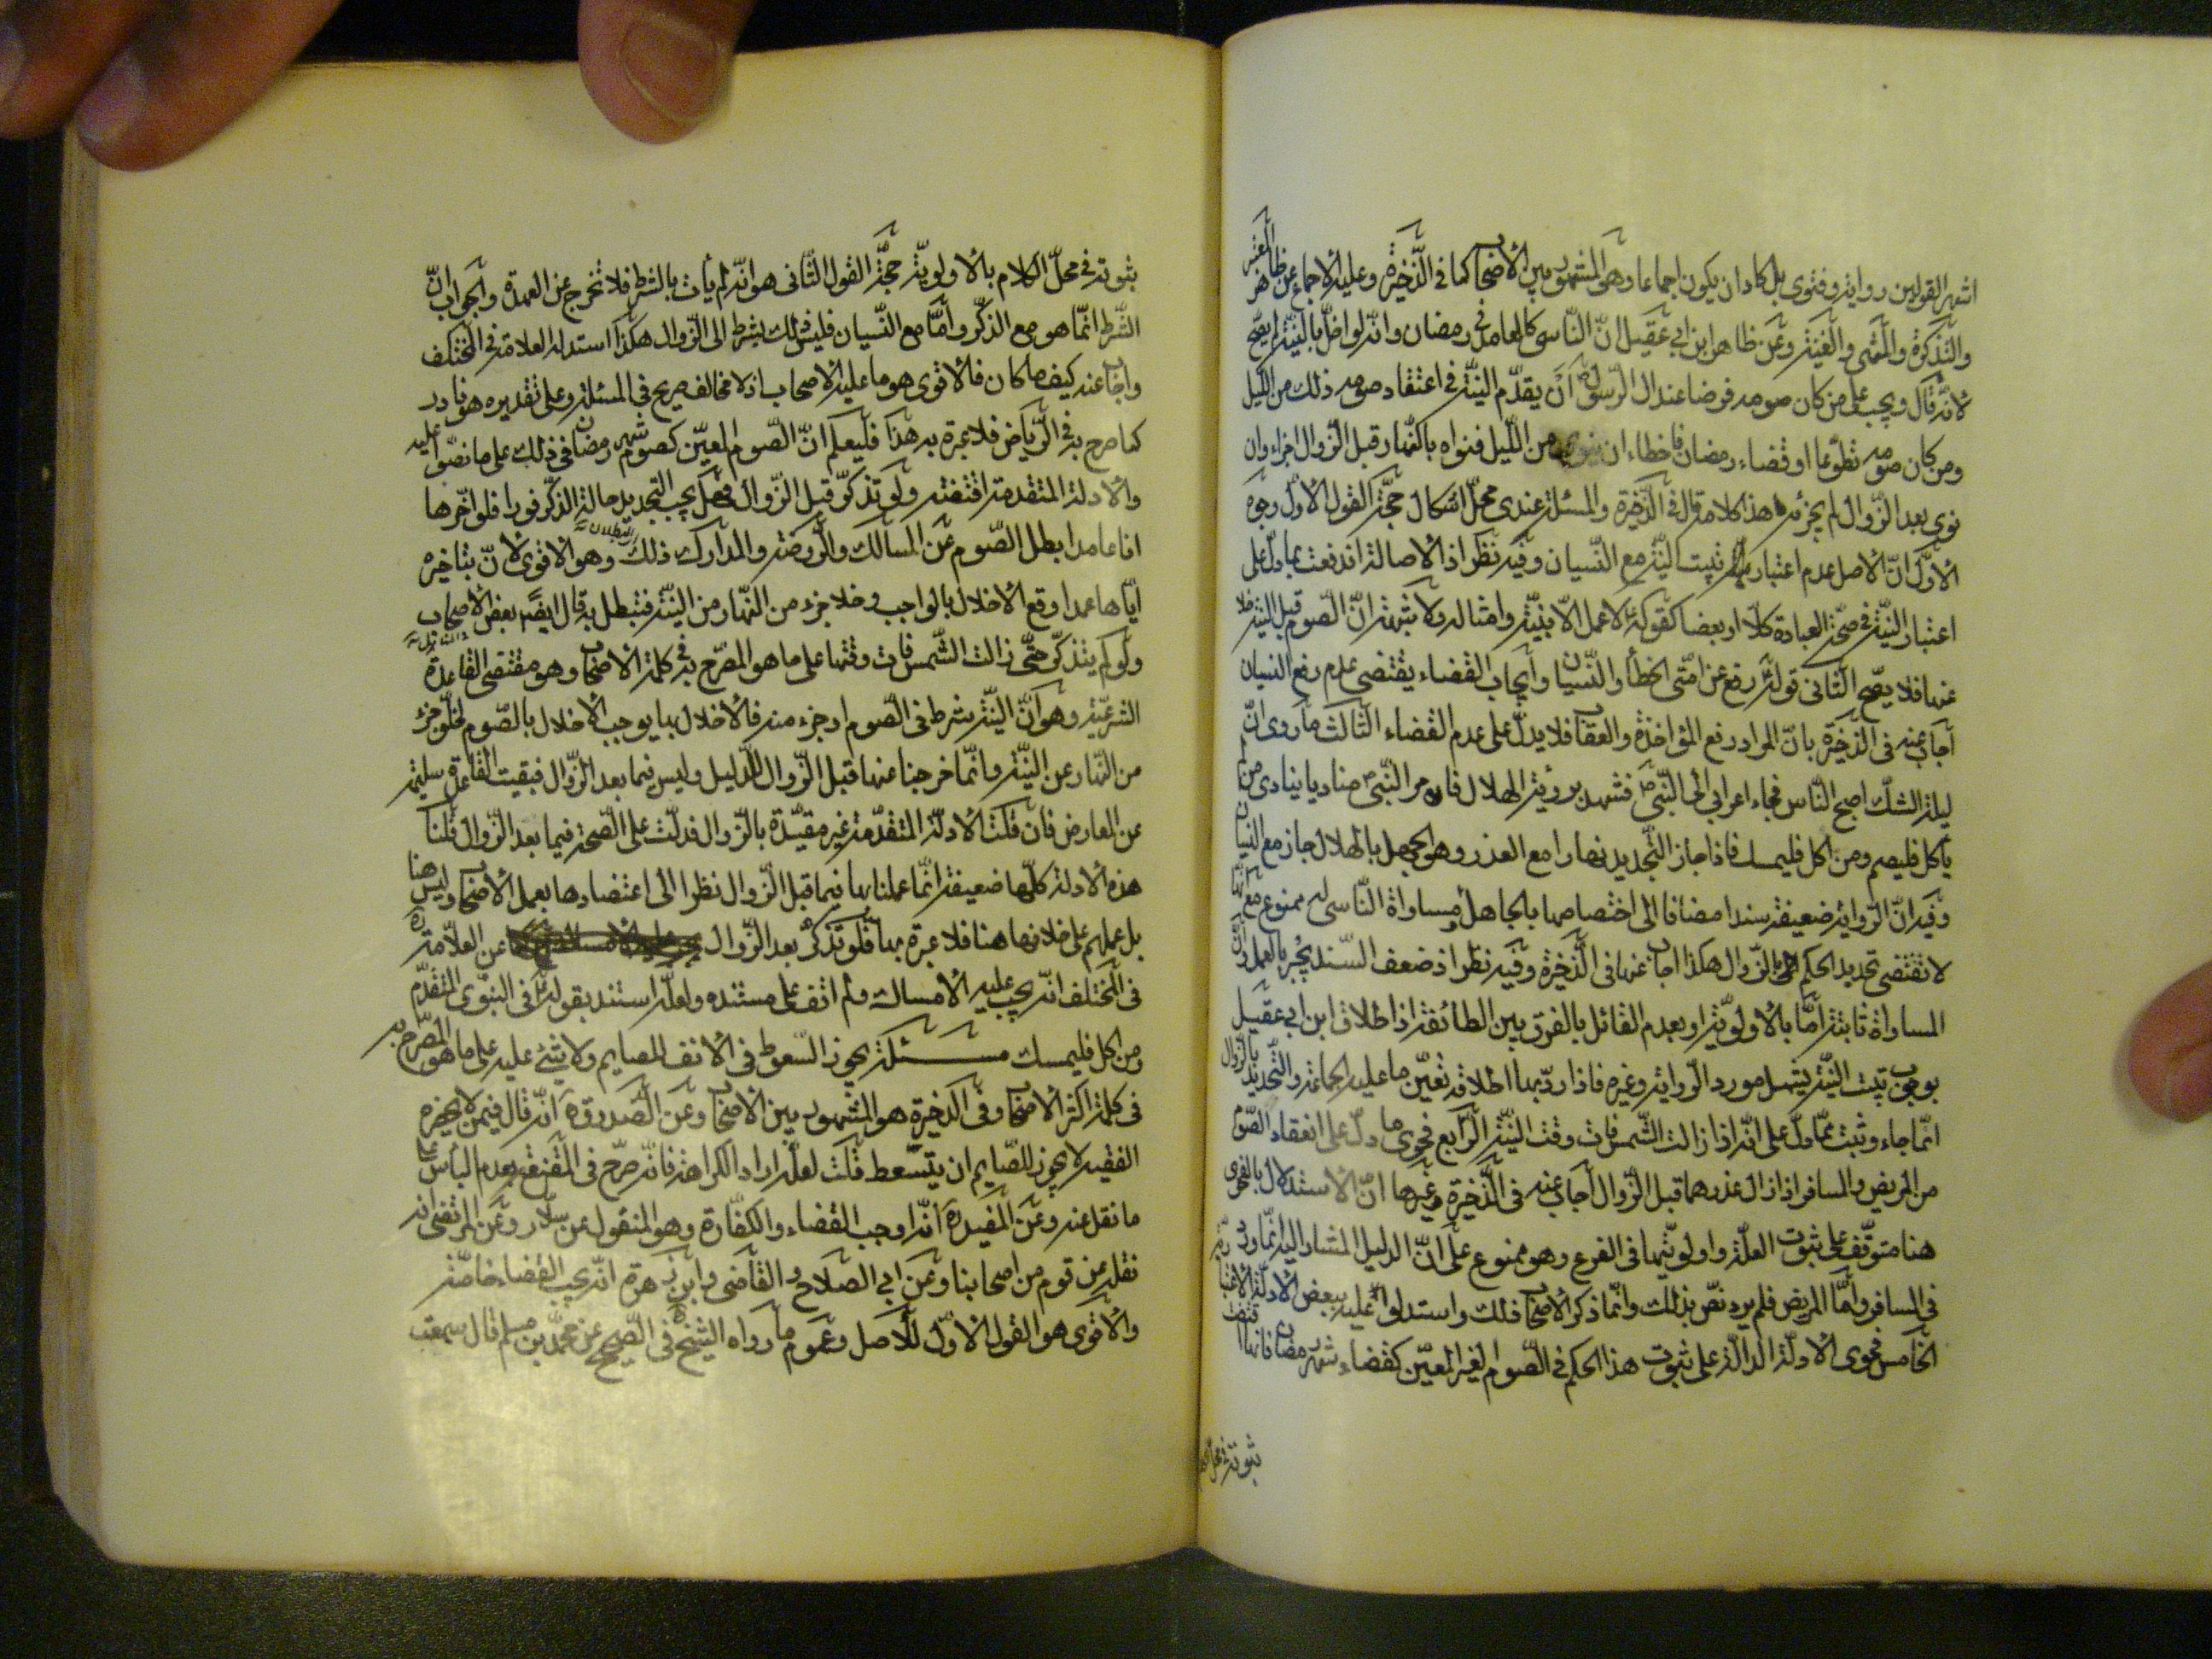 اشهر القولين رواية وفتوى بل كاد ان يكون اجماعا وهو المشهور بين الاصحاب كما فى الذّخيرة وعليه الاجماع عن ظاهر المعتبر
والتذكرة والمنتهى والغنية وعن ظاهر ابن ابي عقيل انّ النّاسى كالعامد فى رمضان وانّه لو اخلّ بالنيّة لم يصحّ
لانّه قال ويجب على من كان صومه فرضا عند ال الرّسول ان يقدّم النيّة فى اعتقاد صومه ذلك من اللّيل
ومن كان صومه تطوّعا او قضاء رمضان فاخطاء ان ينوى من اللّيل فنواه بالنّهار قبل الزّوال اجزاه وان
نوى بعد الزّوال لم يجزئه هذا كلامه قال فى الذّخيرة والمسئلة عندى محلّ اشكال حجّة القول الاوّل وجوه
الاوّل انّ الاصل عدم اعتبار تبييت النيّة مع النّسيان وفيه نظر اذ الاصالة اندفعت بما دلّ على
اعتبار النيّة فى صحّة العبادة كلا او بعضا كقوله لا عمل الّا بنيّة وامثاله ولا شبهة انّ الصّوم قبل النيّة خلا
عنها فلا يصّح الثّانى قوله رفع عن امّتى الخطأ والنّسيان وايجاب القضاء يقتضى عدم رفع النسيان
اجاب عنه فى الذخيرة بانّ المراد رفع المؤاخذة والعقاب فلا يدلّ على عدم القضاء الثّالث ما روى انّ
ليلة الشكّ اصبح النّاس فجاء اعرابي الى النّبي ص فشهد برؤية الهلال فامر النّبيّ ص مناديا ينادى من لم
يأكل فليصم ومن اكل فليمسك فاذا جاز التّجديد نهارا مع العذر وهو الجهل بالهلال جاز مع النسيان
وفيه انّ الرّواية ضعيفة سندا مضافا الى اختصاصها بالجاهل ومساواة النّاسى له ممنوع مع انّها
لا تقتضى تحديد الحكم بالزّوال هكذا اجاب عنها فى الذّخيرة وفيه نظر اذ ضعف السّند يجبر بالعمل وانّ
المساواة ثابتة امّا بالاولويّة او بعدم القائل بالفرق بين الطائفة اذ اطلاق ابن ابي عقيل
بوجوب تبييت النيّة يشمل مورد الرّواية وغيره فاذا ردّ بها اطلاقه تعيّن ما عليه الجماعة والتّحديد بالزّوال
انّما جاء وثبت ممّا دلّ على انّه اذا زالت الشّمس فات وقت النيّة الرّابع فحوى ما دلّ على انعقاد الصّوم
من المريض والمسافر اذا زال عذرهما قبل الزّوال اجاب عنه فى الذّخيرة وغيرها انّ الاستدلال بالفحوى
هنا متوقّف على ثبوت العلّة واولويّتها فى الفرع وهو ممنوع على انّ الدليل المشار اليه انّما ورد
فى المسافر وامّا المريض فلم يرد نصّ بذلك وانّما ذكر الاصحاب ذلك واستدلوا عليه ببعض الادلّة الاعتباريّة
الخامس فحوى الادلّة الدالّة على ثبوت هذا الحكم فى الصّوم الغير المعيّن كقضاء شهر رمضان فانها تقتضى
ثبوته فى محلّ
ثبوته فى محلّ الكلام بالاولويّة حجّة القول الثّانى هو انّه لم يأت بالشرط فلا تخرج عن العهدة والجواب انّ
الشّرط انّما هو مع الذّكر وامّا مع النّسيان فليس ذلك بشرط الى الزّوال هكذا استدلّ له العلامة فى المختلف
واجاب عنه كيف ما كان فالاقوى هو ما عليه الاصحاب اذ لا مخالف صريح فى المسئلة وعلى تقديره هو نادر
كما صرح به فى الرّياض فلا عبرة به هذا فليعلم انّ الصّوم المعيّن كصوم شهر رمضان فى ذلك على ما نصّوا عليه
والادلة المتقدمة اقتضته ولو تذكّر قبل الزّوال فهل يجب التجديد حالة الذّكر فورا فلو اخّرها
انا عامدا بطل الصّوم عن المسالك والرّوضة والمدارك ذلك وهو الاقوى لانّ بتاخيره
ايّاها عمدا وقع الاخلال بالواجب وخلا جزء من النّهار من النيّة فتبطل به قال ايضا بعض الاصحاب
ولو لم يتذكّر حتّى زالت الشّمس فات وقتها على ما هو المصّرح به فى كلمة الاصحاب وهو مقتضى القاعدة
الشرعيّة وهو انّ النيّة شرط فى الصّوم او جزء منه فالاخلال بها يوجب الاخلال بالصّوم لخلوّ جزء
من النّهار عن النيّة وانّما خرجنا عنها قبل الزّوال للدّليل وليس فيما بعد الزّوال فبقيت القاعدة سليمة
عن المعارض فان قلت الادلّة المتقدّمة غير مقيّدة بالزّوال فدلّت على الصّحة فيما بعد الزّوال قلنا
هذه الادلة كلّها ضعيفة انّما عملنا بها فيما قبل الزّوال نظرا الى اعتضادها بعمل الاصحاب وليس هنا
بل عملهم على خلافها هنا فلا عبرة بها فلو تذكّر بعد الزّوال عن العلّامة ره
فى المختلف انّه يجب عليه الامساك ولم اقف على مستنده ولعلّه استند بقوله فى النبوّى المتقدّم
ومن اكل فليمسك مسئلة يجوز السّعوط فى الانف للصايم ولا شئ عليه على ما هو المصّرح به
فى كلمة اكثر الاصحاب وفى الذخيرة هو المشهور بين الاصحاب وعن الصّدوق ره انّه قال فيمن لا يحضره
الفقيه لا يجوز للصّايم ان يتسّعط قلت لعلّه اراد الكراهة فانّه صرّح فى المقنع بعدم البأس على
ما نقل عنه وعن المفيد ره انّه اوجب القضاء والكفّارة وهو المنقول عن سلّار وعن المرتضى انّه
نقله عن قوم من اصحابنا وعن ابي الصلاح والقاضى وابن زهرة انّه يجب القضاء خاصّة
والاقوى هو القول الاوّل للاصل وعموم ما رواه الشيخ فى الصّحيح عن محمّد بن مسلم قال سمعت